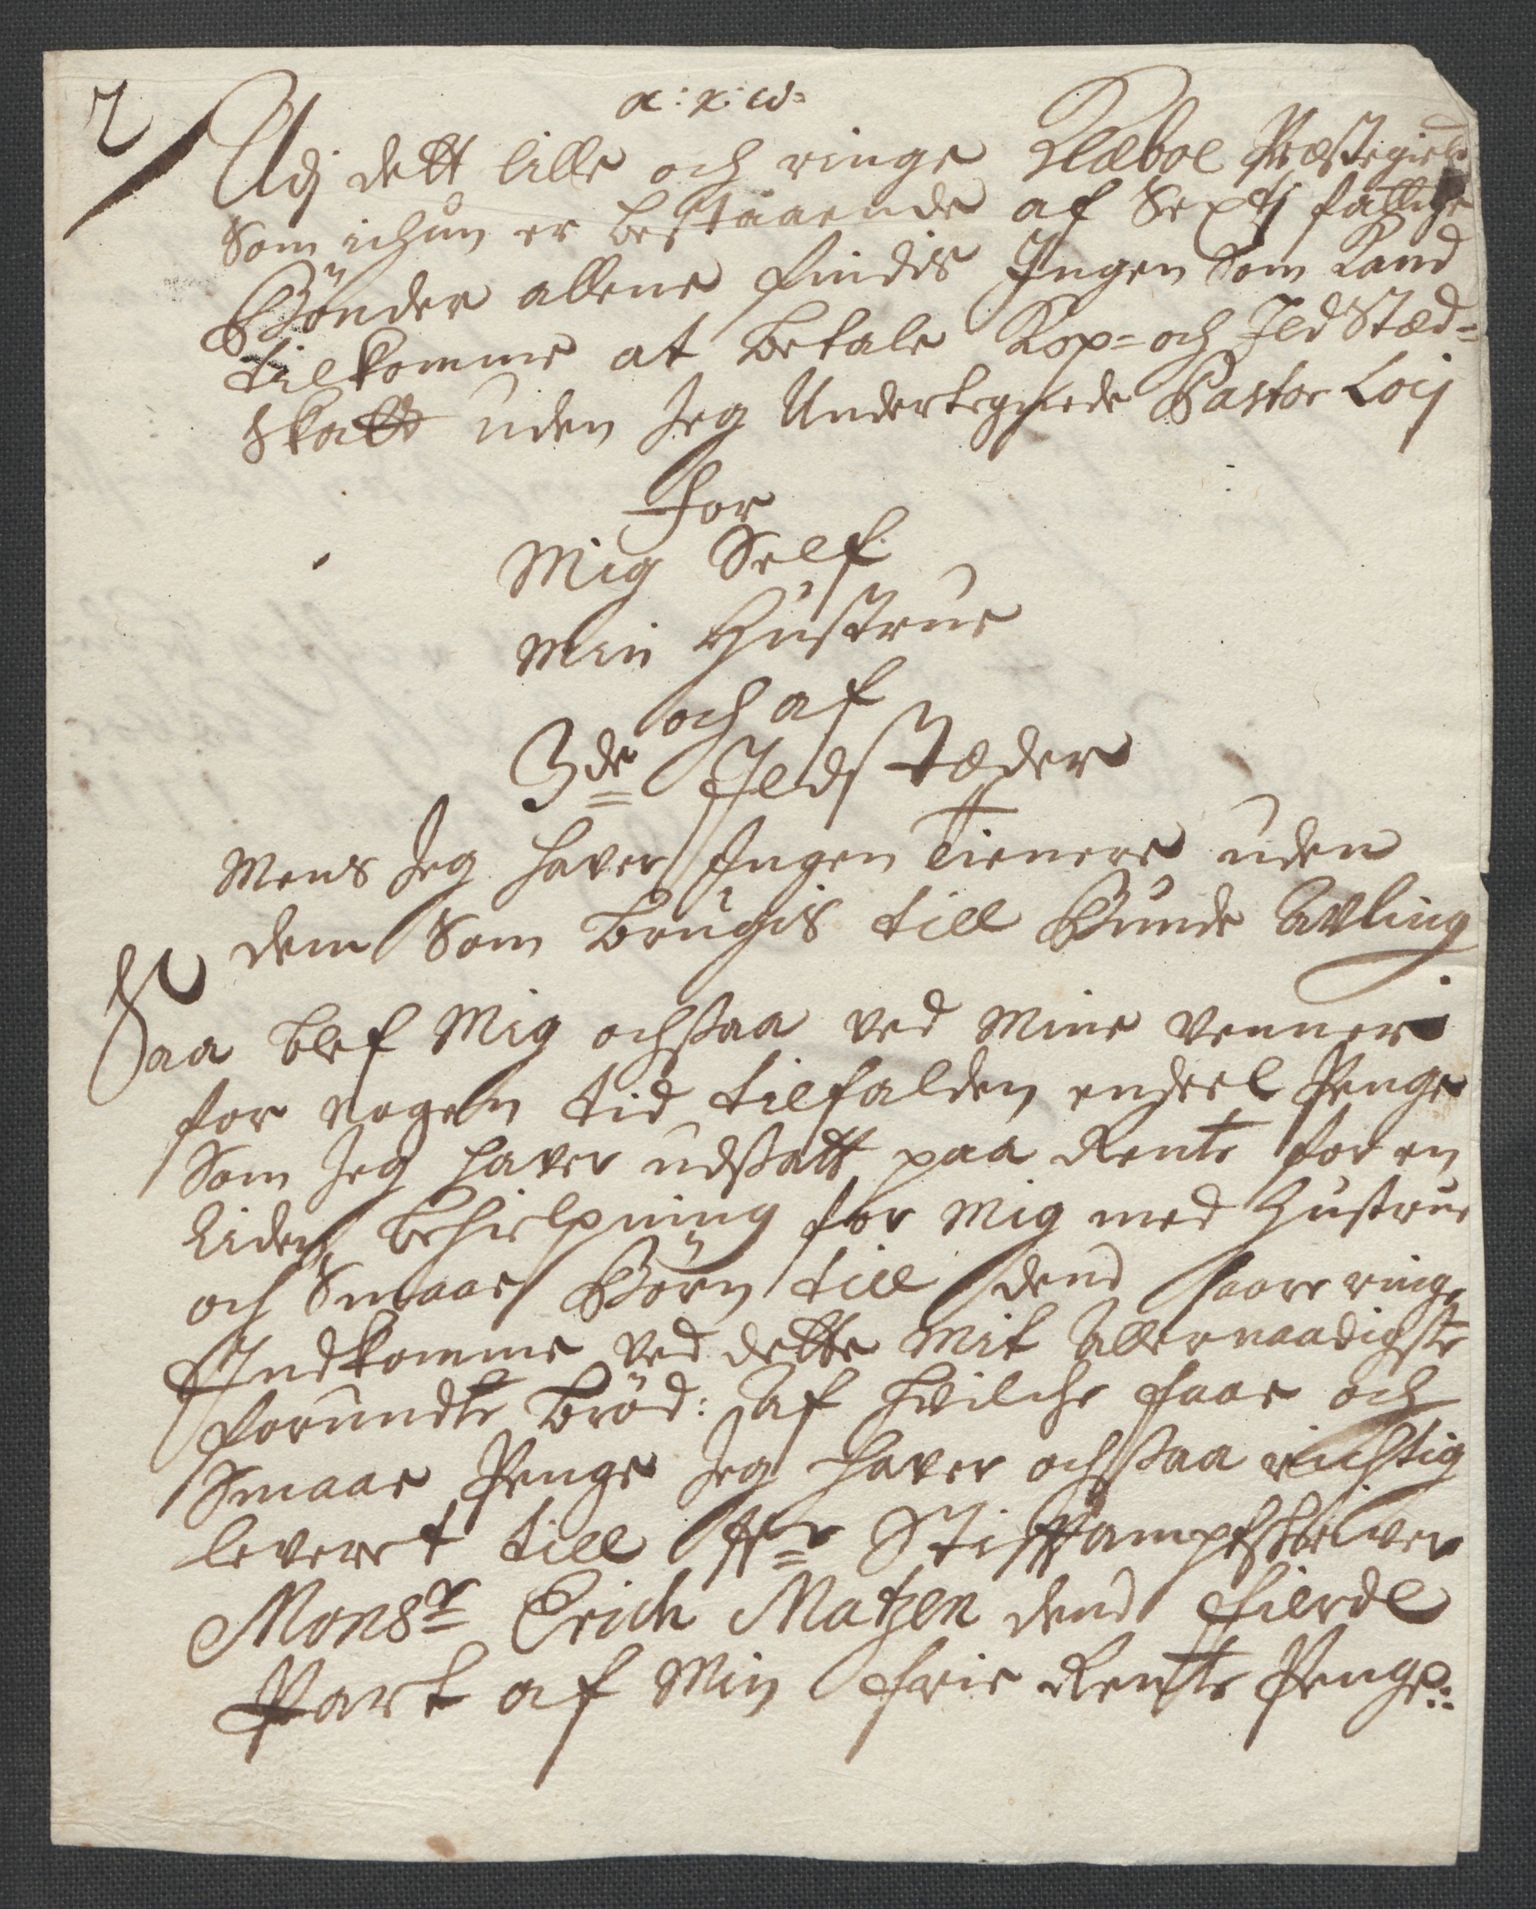 2
α: χ: ω:
Udj dett lille och ringe Klæboe Præstegield
Som ichun er bestaaende af Septj fattige
Bönder allene findis Ingen som kand
tilkomme at betale Kop= och Ild Stæd=
skatt uden Jeg Undertegnede Pastor Locj
for
Mig Self
Min Hustrue
och af
3de Ildstæder
Mens Jeg haver Ingen Tienere uden
dem som brugis till Bunde Avling
Saa blef Mig ochsaa ved Mine Venner
for nogen tid tilfalden endeel Penge
Som Jeg haver udsatt paa Rente for en
liden behielpning for Mig med Hustrue
och Smaae Börn till dend saare ringe
Indkomme ved dette Mit Allernaadigste
forundte bröd: Af hvilche faae och
Smaae Penge Jeg haver ochsaa richtig
leveret till Hr Stiftampschriver
Monsr Erich Matzen dend fierde
Part af Min frie Rente Penge: